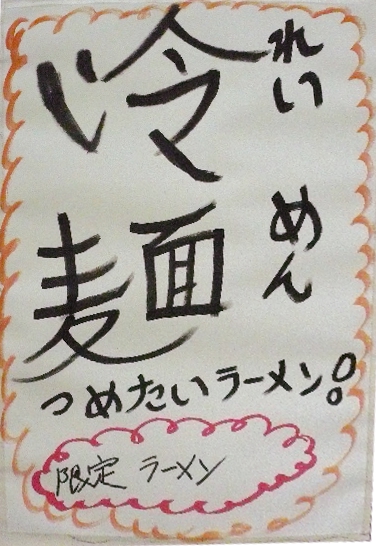 冷麺
れいめん
つめたいラーメン!
限定 ラーメン